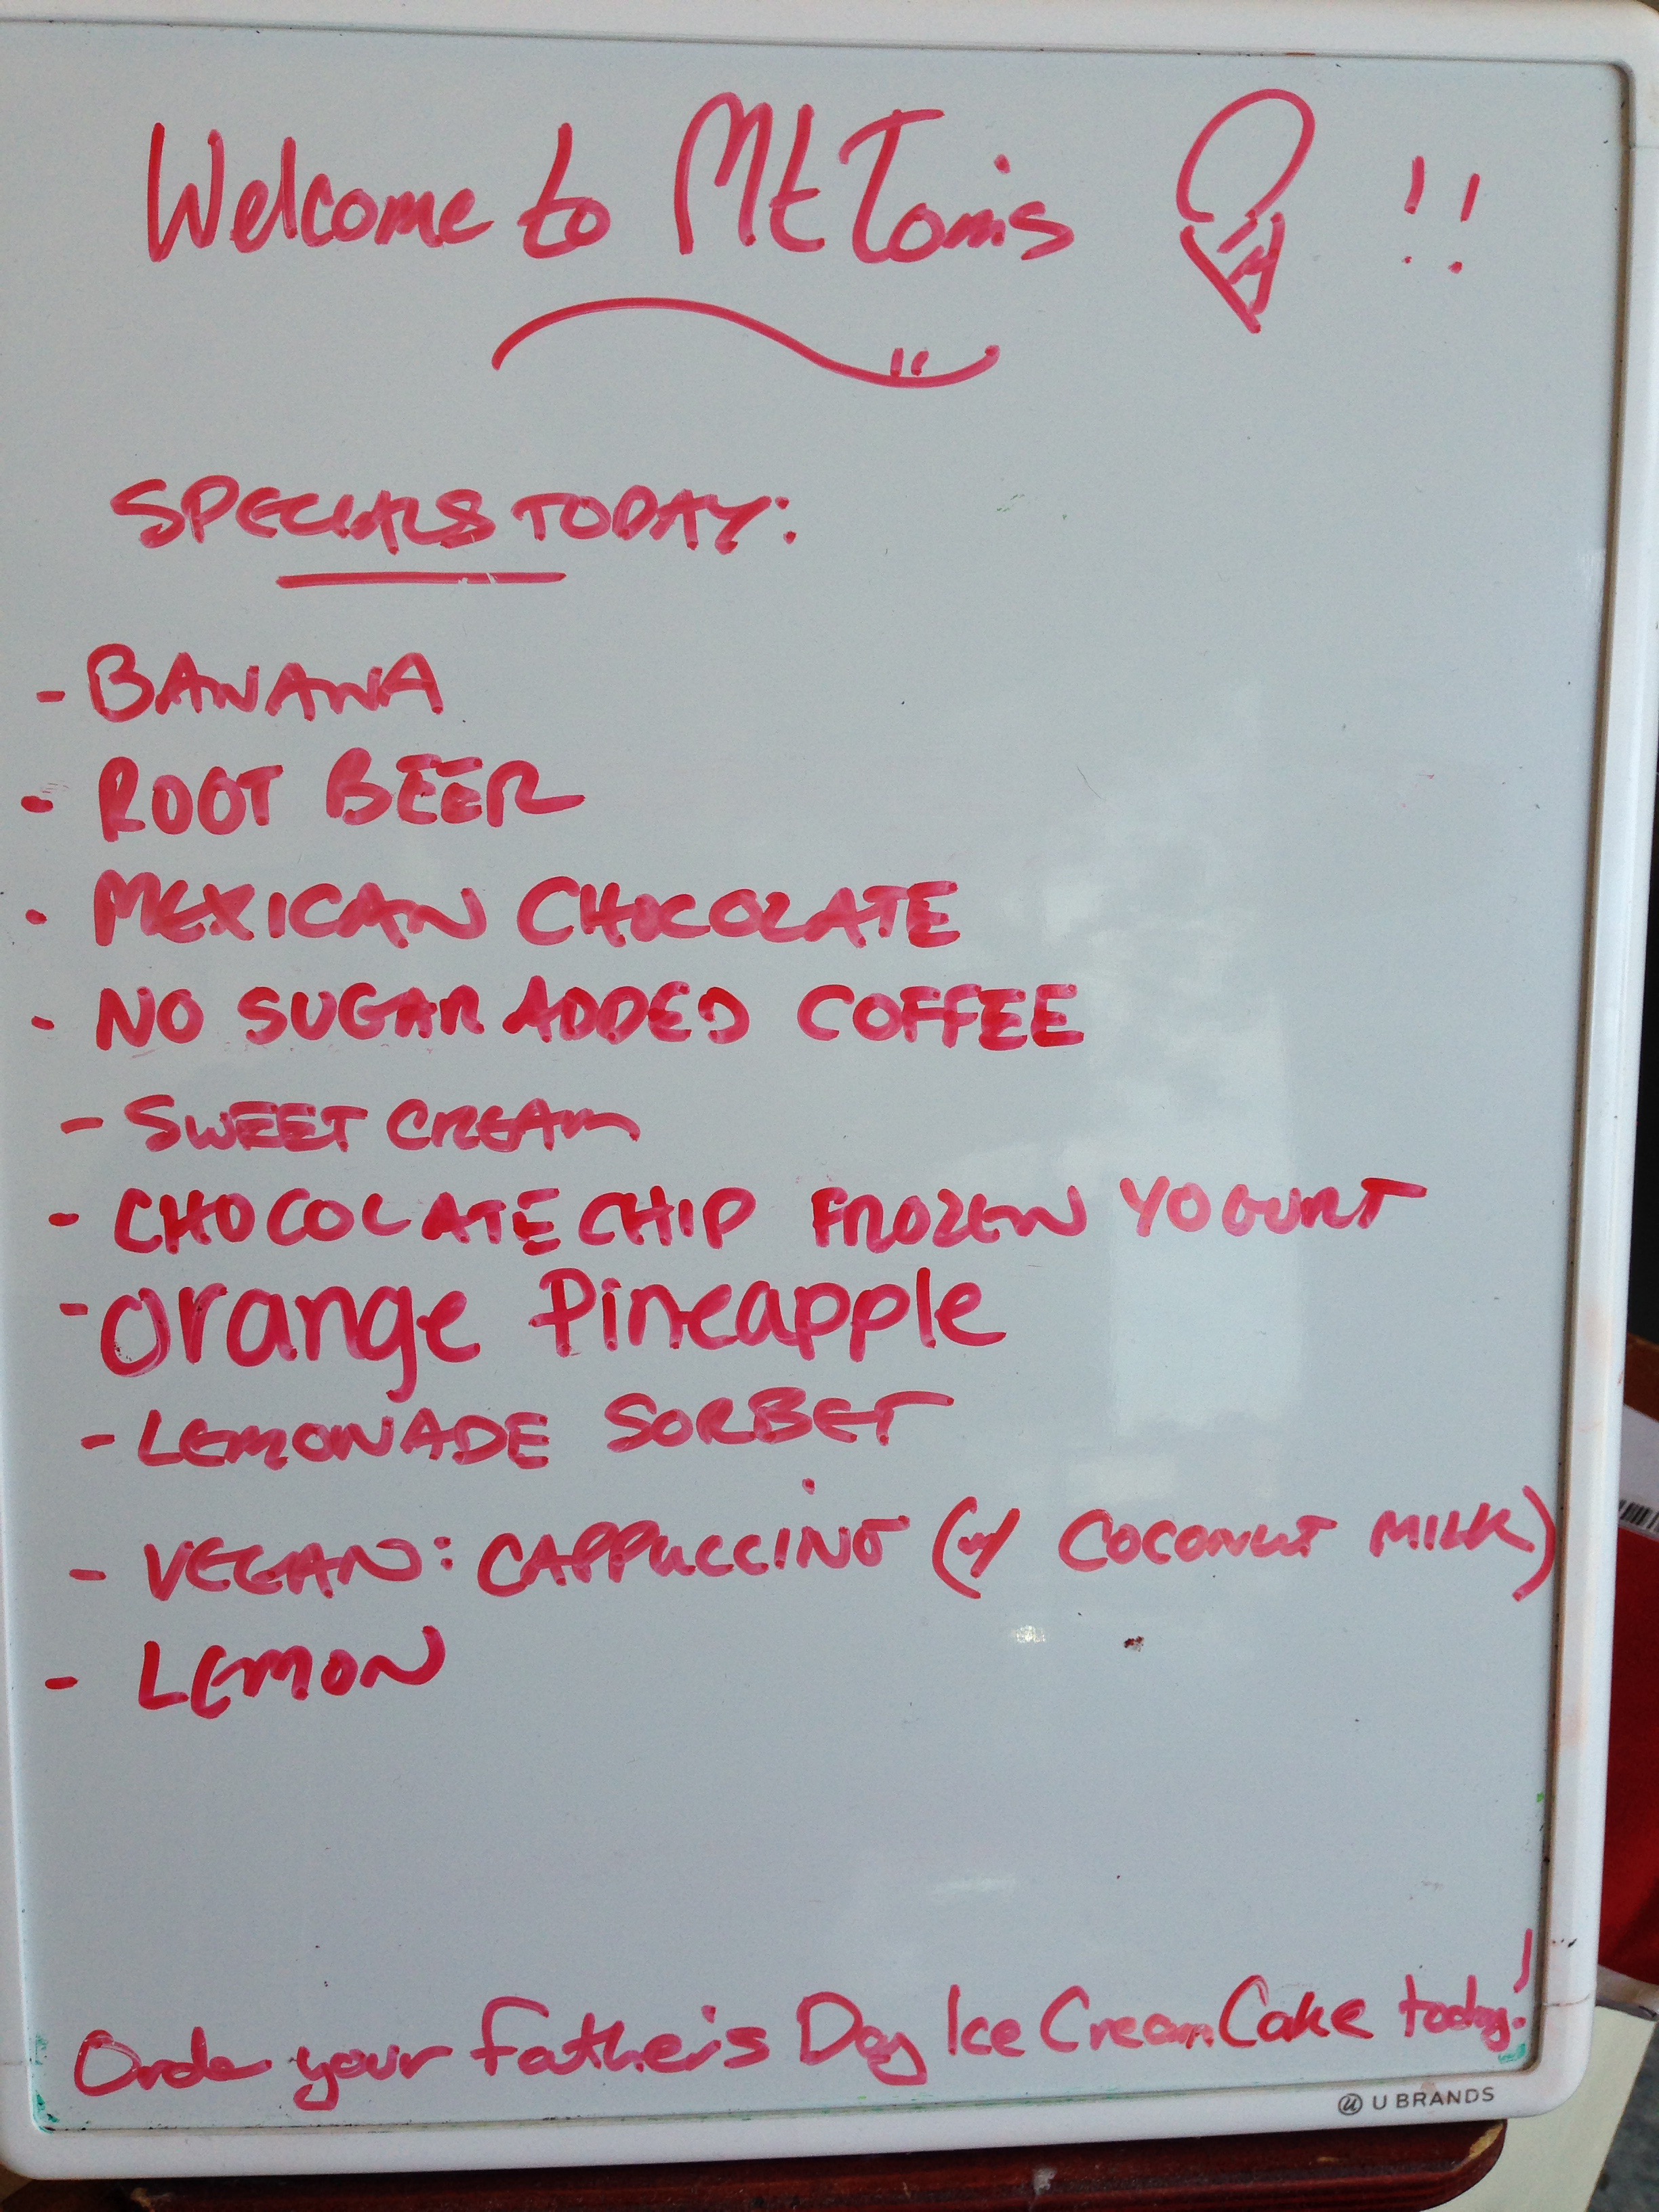 Welcome to Mt Tom's !!
SPECIALS TODAY:
- BANANA
- ROOT BEER
- MEXICAN CHOCOLATE
- NO SUGAR ADDED COFFEE
- SWEET CREAM
- CHOCOLATE CHIP FROZEN YOGURT
- Orange Pineapple
- LEMONADE SORBET
- VEGAN: CAPPUCCINO (w/ COCONUT MILK)
- LEMON
Order your Father's Day Ice Cream Cake today!
U BRANDS